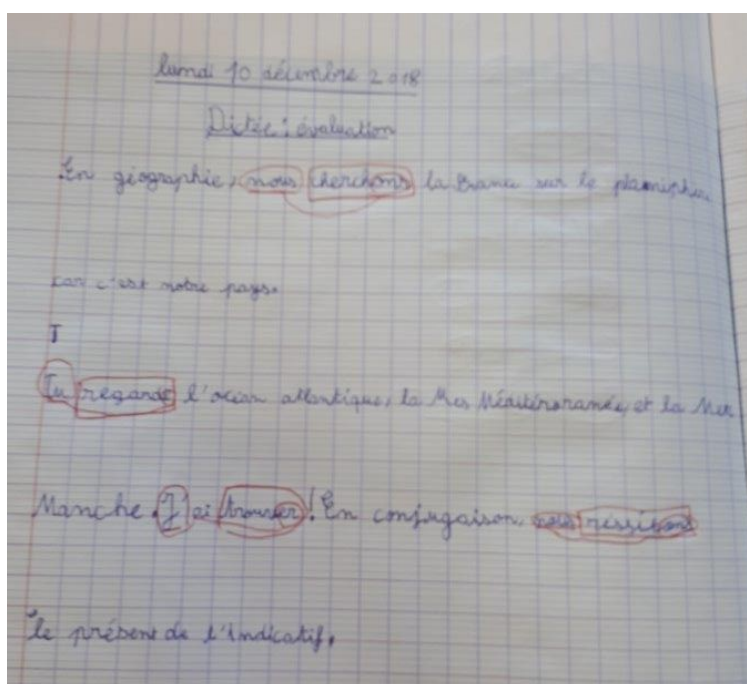 lundi 10 décembre 2018
Dictée : évaluation
En géographie, nous cherchons la France sur le planisphère
car c'est notre pays.
T
Tu regards l'océan atlantique, la Mer Méditérrannée, et la Mer
Manche. J'ai trouver ! En conjugaison, nous
le présent de l'indicatif.